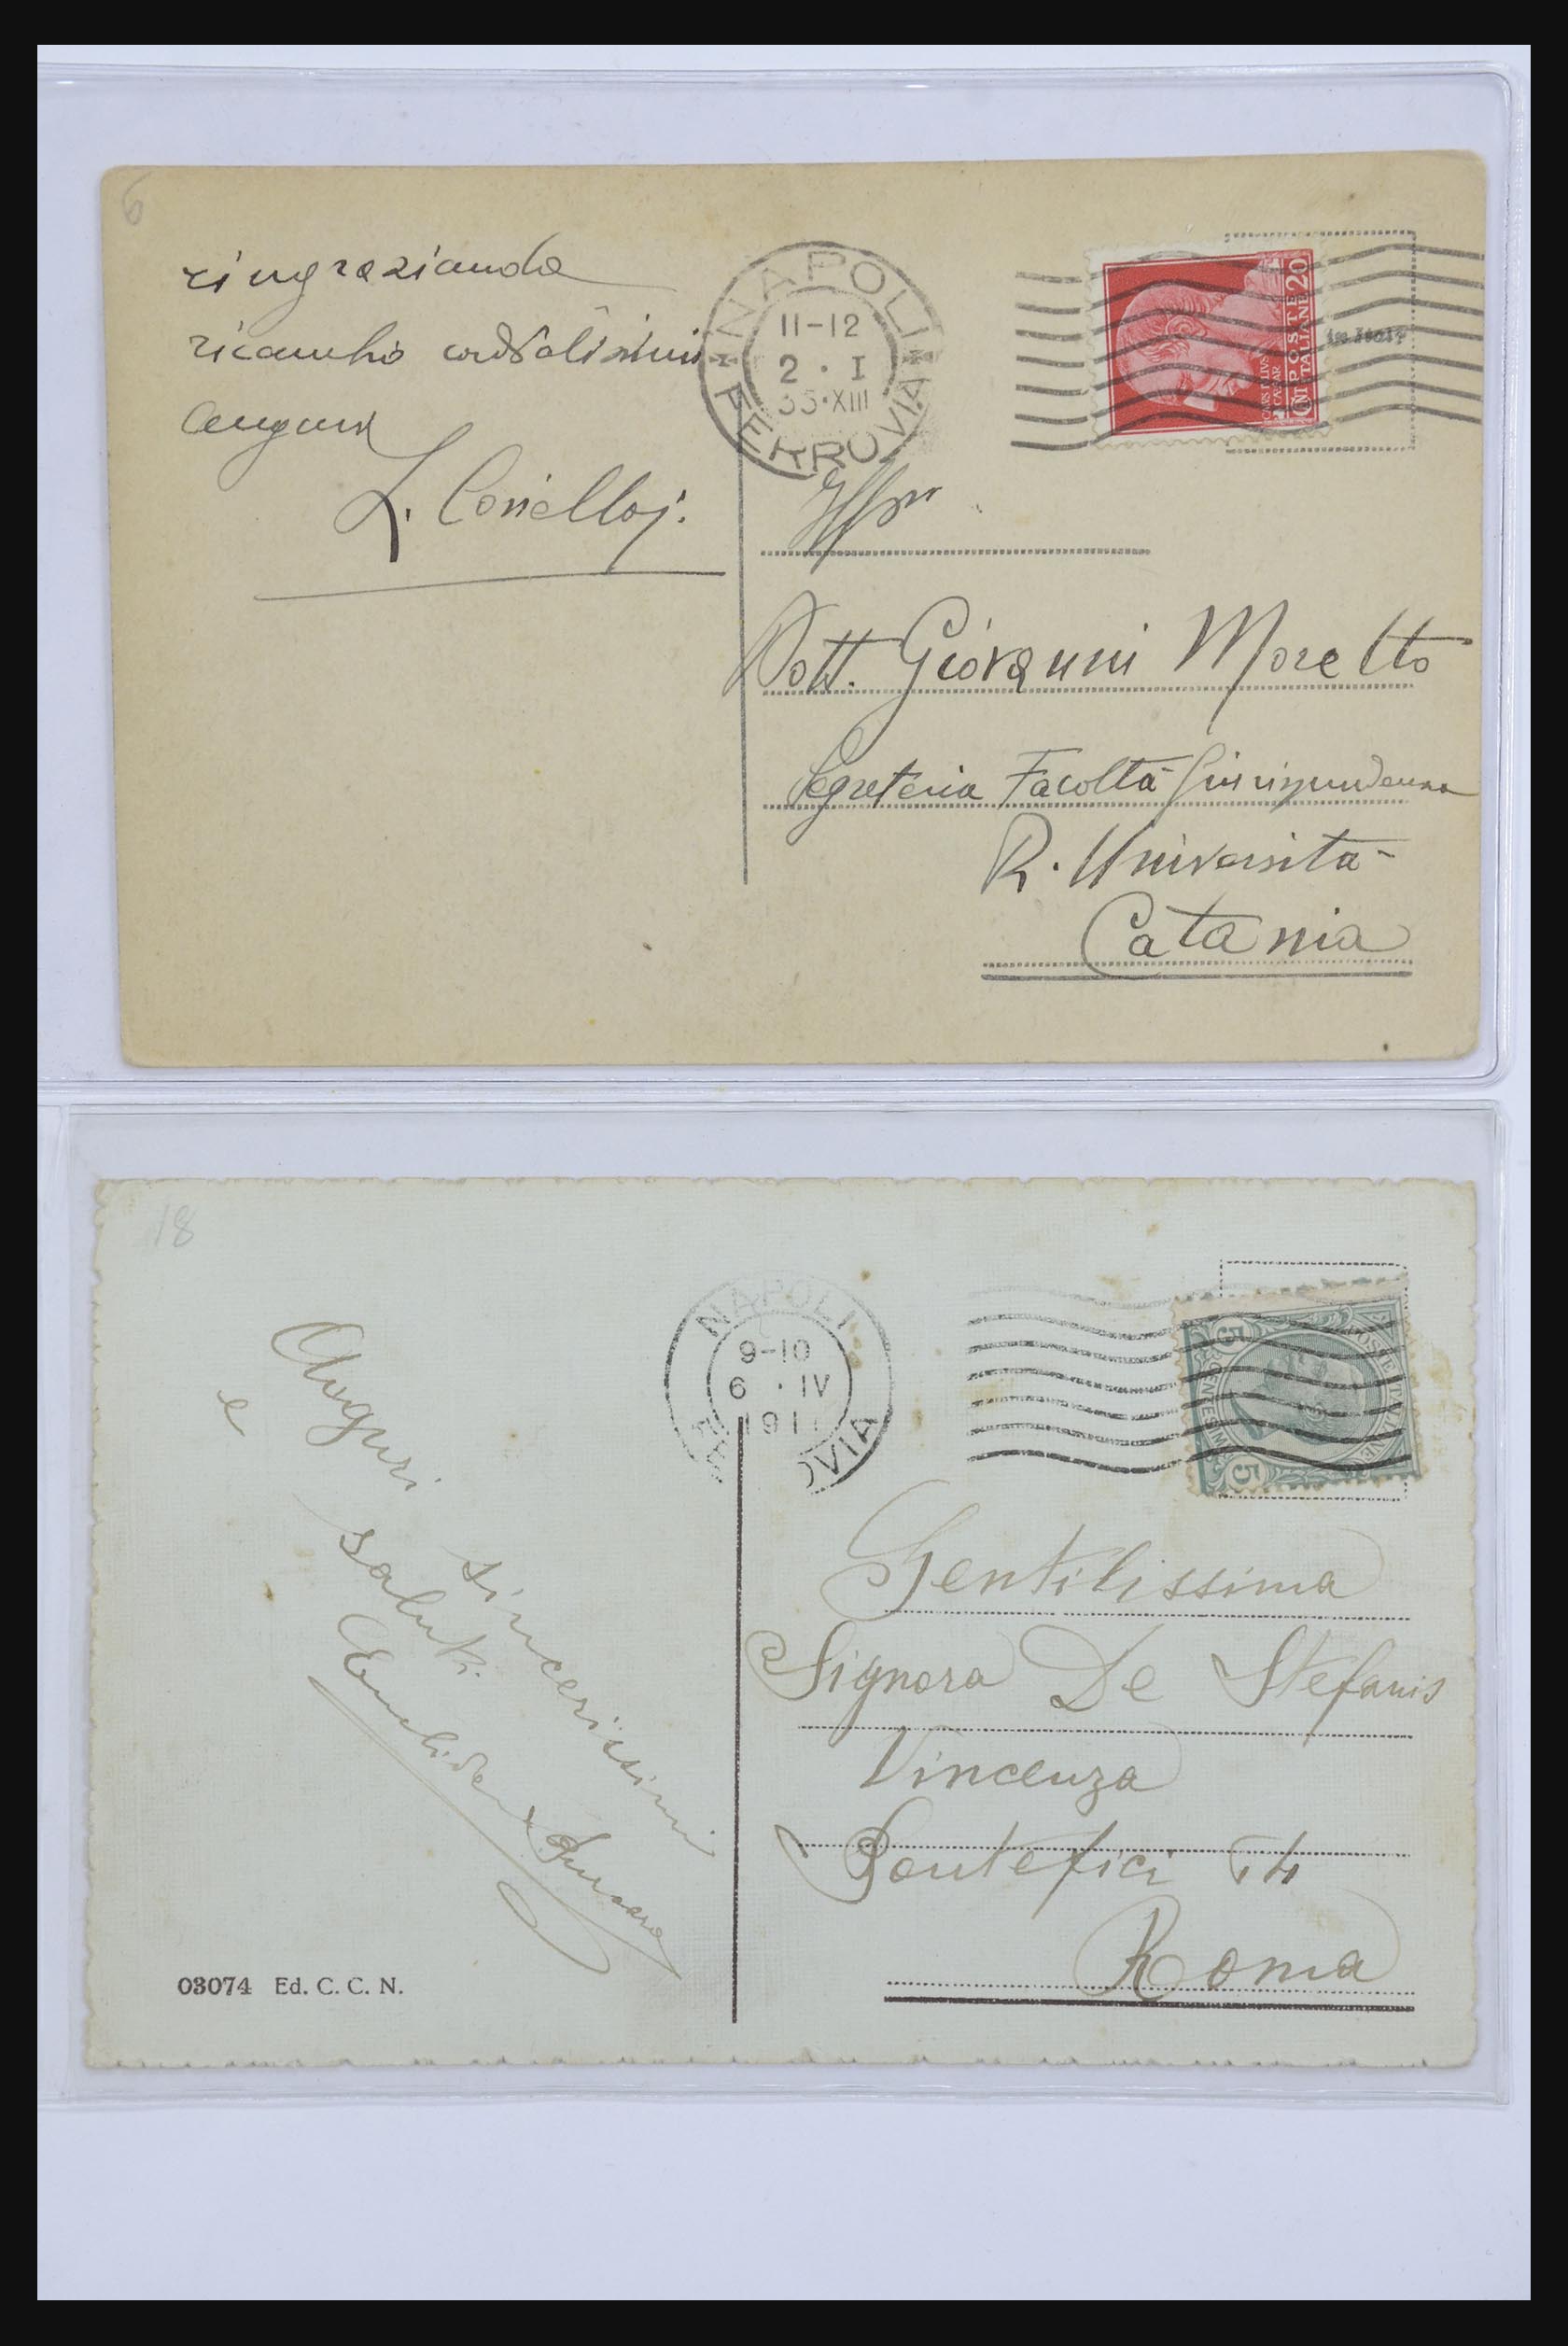 6
ringraziando
ricambio cordialissimi
auguri
NAPOLI
11-12
2 · I
35·XIII
FERROVIA
POSTE ITALIANE
20
CENT
CAESAR
Dott. Giovanni Moretto
Segreteria Facoltà Giurisprudenza
R. Università
Catania
18
Auguri sincerissimi
e saluti
NAPOLI
9-10
6 · IV
191
OVIA
POSTE ITALIANE
5
CENTESIMI
5
Gentilissima
Signora De Stefanis
Vincenza
Pontefici 54
Roma
03074 Ed. C. C. N.